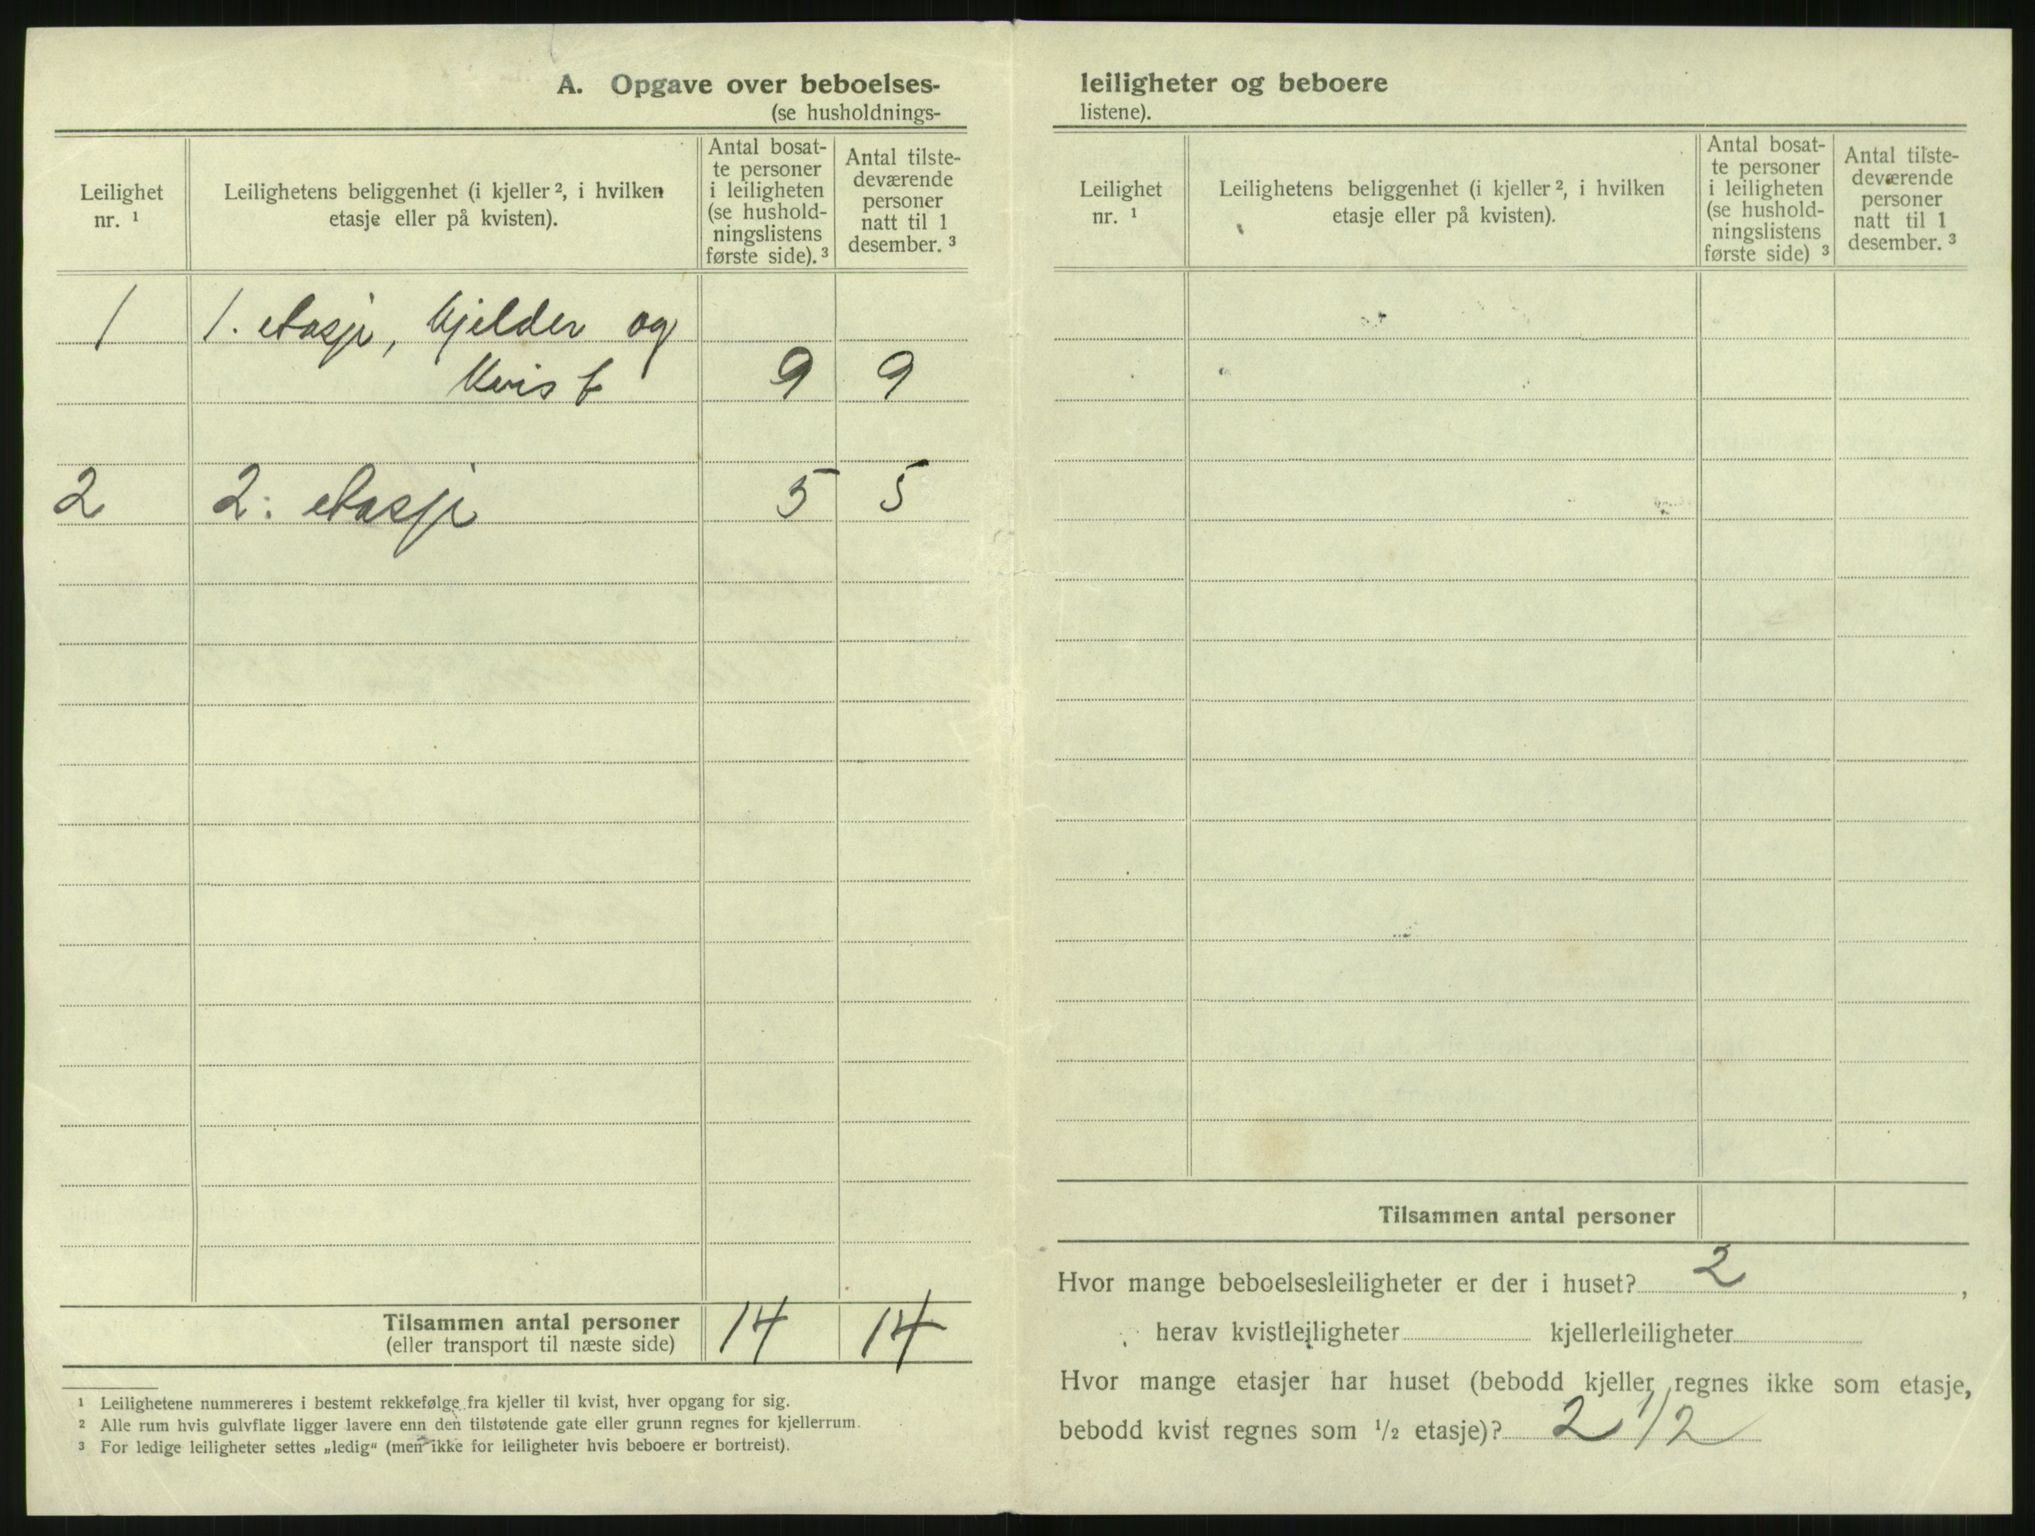 A. Opgave over beboelses-
(se husholdnings-
Leilighet
nr. 1
Leilighetens beliggenhet (i kjeller 2, i hvilken
etasje eller på kvisten).
Antal bosat-
te personer
i leiligheten
(se hushold-
ningslistens
første side). 3
Antal tilste-
deværende
personer
natt til 1
desember. 3
1 1. etasje, kjelder og
kvist 9 9
2 2. etasje 5 5
Tilsammen antal personer 14 14
(eller transport til næste side)
1 Leilighetene nummereres i bestemt rekkefølge fra kjeller til kvist, hver opgang for sig.
2 Alle rum hvis gulvflate ligger lavere enn den tilstøtende gate eller grunn regnes for kjellerrum.
3 For ledige leiligheter settes „ledig“ (men ikke for leiligheter hvis beboere er bortreist).
leiligheter og beboere
listene).
Leilighet
nr. 1
Leilighetens beliggenhet (i kjeller 2, i hvilken
etasje eller på kvisten).
Antal bosat-
te personer
i leiligheten
(se hushold-
ningslistens
første side) 3
Antal tilste-
deværende
personer
natt til 1
desember. 3
Tilsammen antal personer
Hvor mange beboelsesleiligheter er der i huset? 2,
herav kvistleiligheter kjellerleiligheter
Hvor mange etasjer har huset (bebodd kjeller regnes ikke som etasje,
bebodd kvist regnes som 1/2 etasje)? 2 1/2